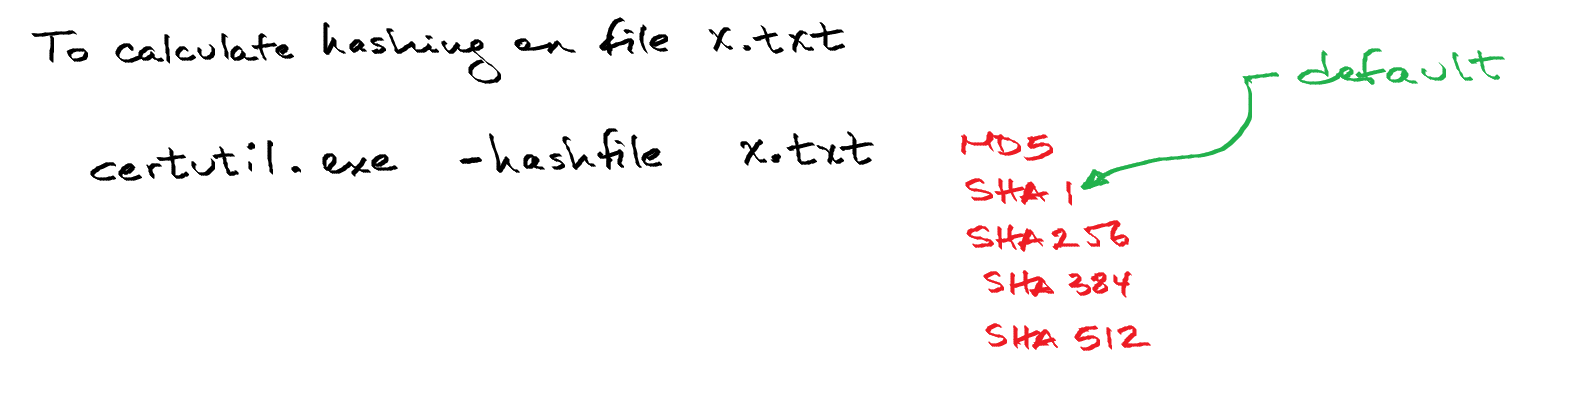 To calculate hashing on file x.txt
default
certutil.exe -hashfile x.txt MD5
SHA 1
SHA 256
SHA 384
SHA 512